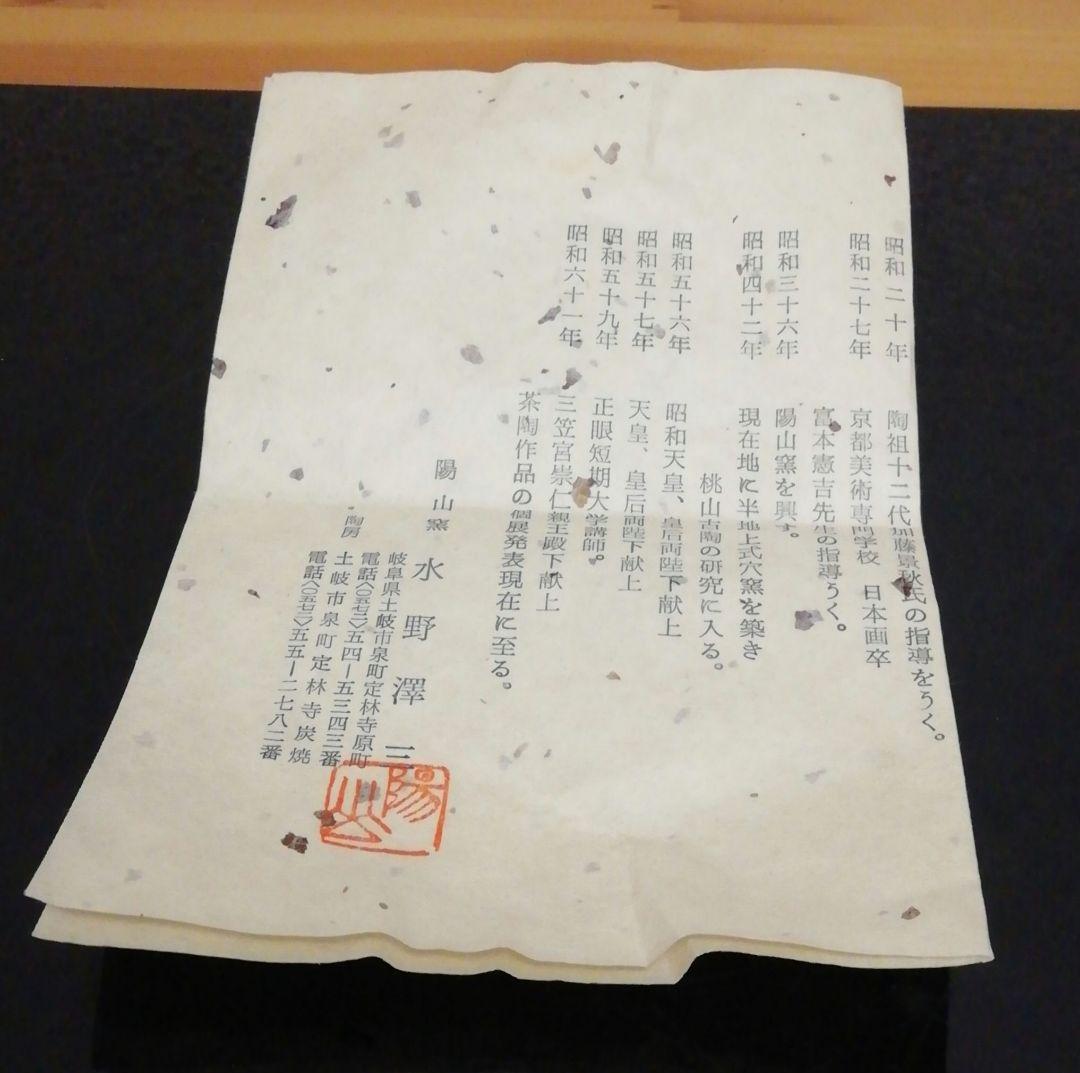 昭和二十年　陶祖十二代加藤景秋氏の指導をうく。
昭和二十七年　京都美術専門学校　日本画卒
富本憲吉先生の指導うく。
昭和三十六年　陽山窯を興す。
昭和四十二年　現在地に半地上式穴窯を築き
桃山古陶の研究に入る。
昭和五十六年　昭和天皇、皇后両陛下献上
昭和五十七年　天皇、皇后両陛下献上
昭和五十九年　正眼短期大学講師。
昭和六十一年　三笠宮崇仁親王殿下献上
茶陶作品の個展発表現在に至る。
陽山窯　水野澤三
岐阜県土岐市泉町定林寺原町
電話〈〇五七二〉五四ー五三四三番
陶房　土岐市泉町定林寺炭焼
電話〈〇五七二〉五五ー二七八二番
陽山